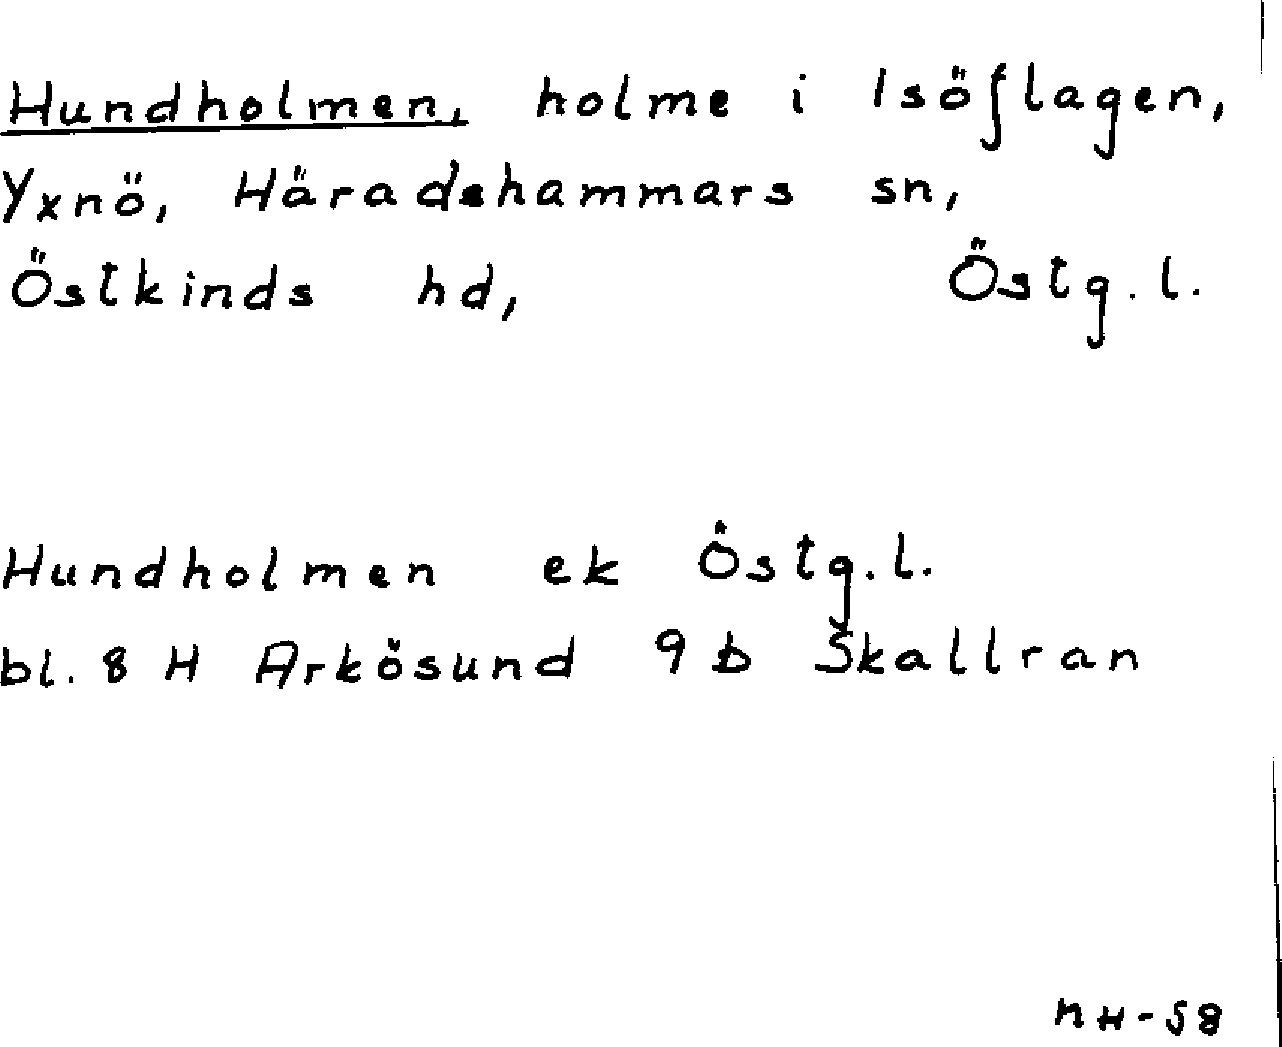 Hundholmen, holme i Isöflagen,
Yxnö, Häradshammars sn,
Östkinds hd, Östg.l.
Hundholmen ek Östg.l.
bl. 8 H Arkösund 9 b Skallran
nH-58